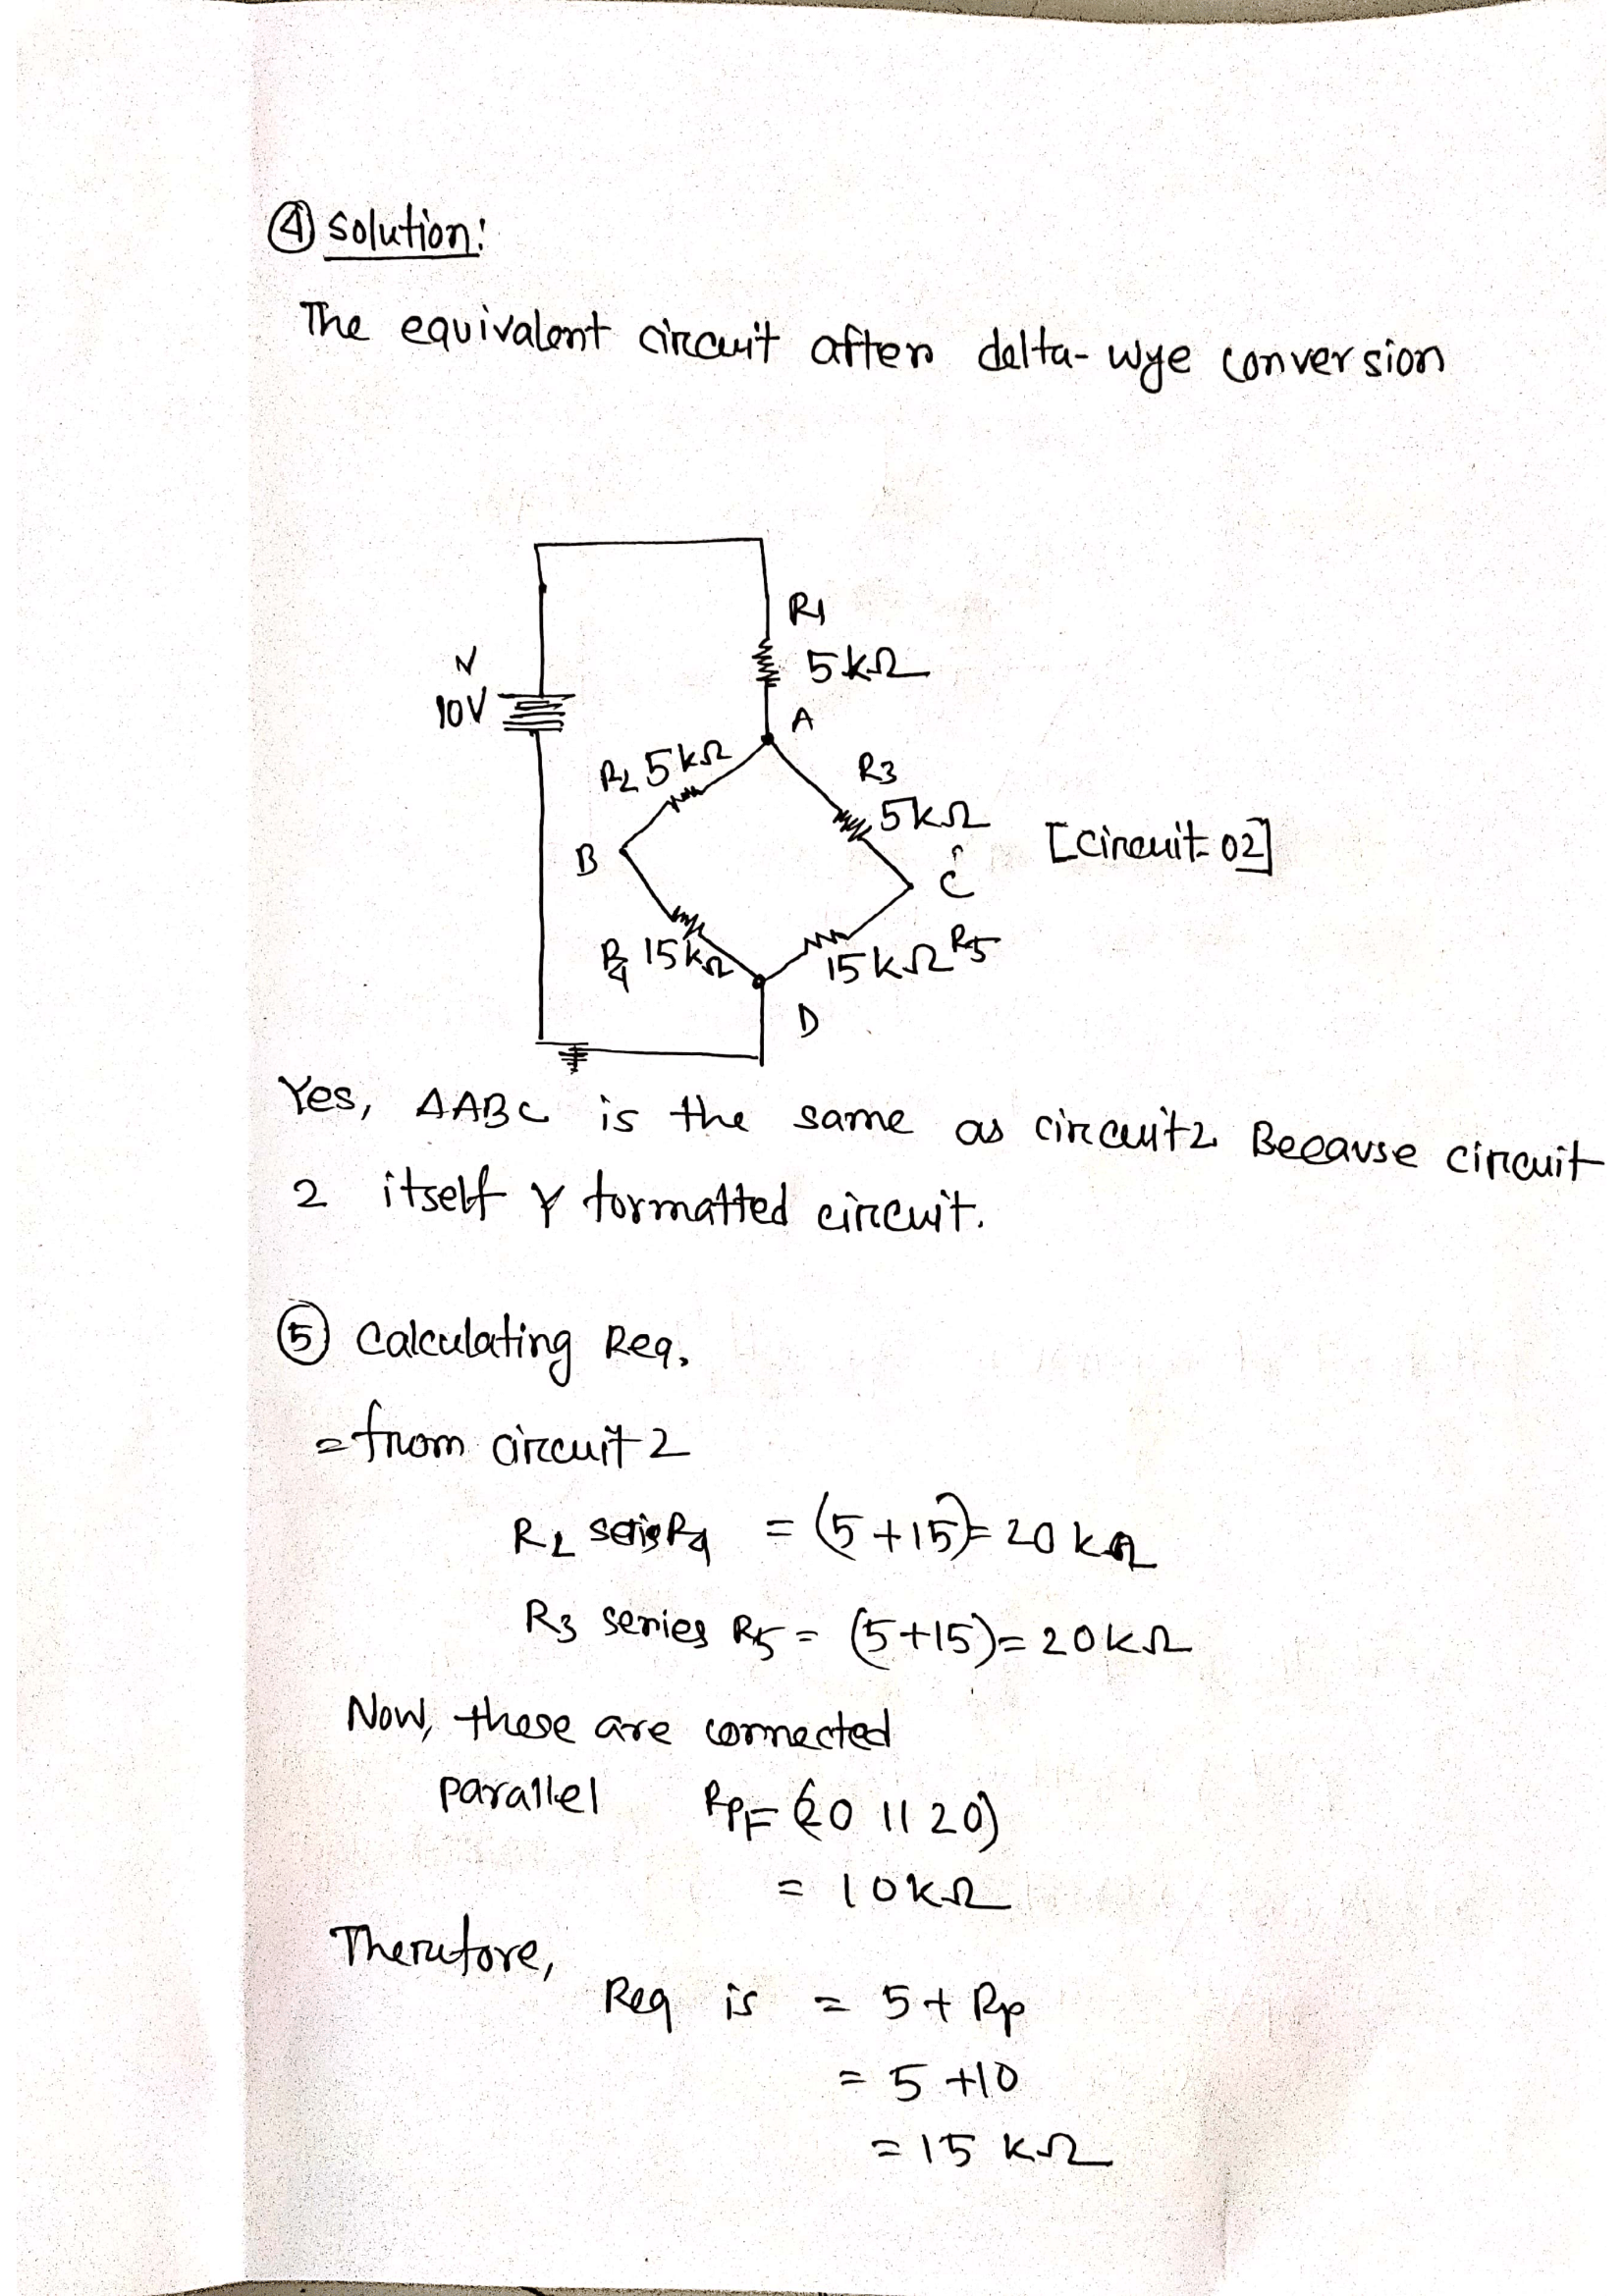 ④ Solution:
The equivalent circuit after delta-wye conversion
R1
5kΩ
V
10V
A
R2 5kΩ
R3
5kΩ
[Circuit-02]
B
C
R4 15kΩ
15kΩ R5
D
Yes, ΔABC is the same as circuit 2 Because circuit
2 itself Y formatted circuit.
⑤ Calculating Req.
= from circuit 2
R2 series R4 = (5+15) = 20 kΩ
R3 series R5 = (5+15) = 20kΩ
Now, these are connected
parallel Rp = (20 || 20)
= 10kΩ
Therefore,
Req is = 5 + Rp
= 5 + 10
= 15 kΩ